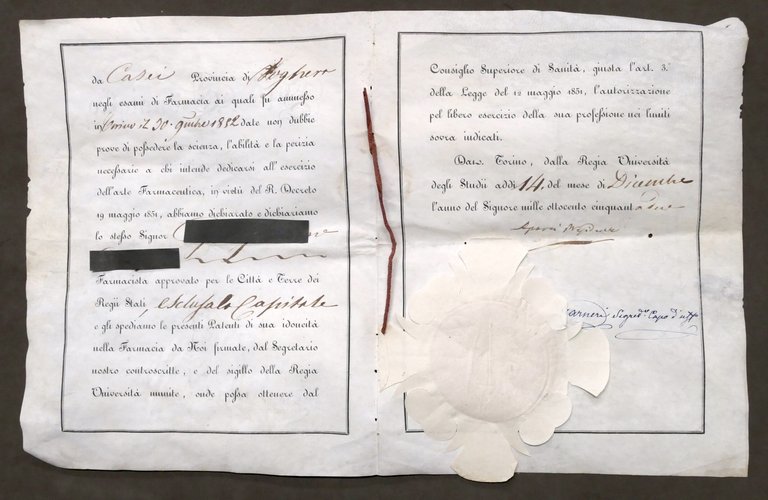 da Casei Provincia di Voghera
negli esami di Farmacia ai quali fu ammesso
in Torino il 30 9mbre 1852 date non dubbie
prove di poſſedere la scienza, l'abilità e la perizia
necessario a chi intende dedicarsi all'esercizio
dell'arte Farmaceutica, in virtù del R. Decreto
19 maggio 1851, abbiamo dichiarato e dichiariamo
lo steſso Signor
Farmacista approvato per le Città e Terre dei
Regii Stati, esclusa la Capitale
e gli spediamo le presenti Patenti di sua idoneità
nella Farmacia da Noi firmate, dal Segretario
nostro controscritte, e del sigillo della Regia
Università munite, onde poſsa ottenere dal
Consiglio Superiore di Sanità, giusta l'art. 3.°
della Legge del 12 maggio 1851, l'autorizzazione
pel libero esercizio della sua profeſsione nei limiti
sovra indicati.
Dat. Torino, dalla Regia Università
degli Studii addì 14 del mese di Dicembre
l'anno del Signore mille ottocento cinquantadue
Segret.° Capo d'uff.°